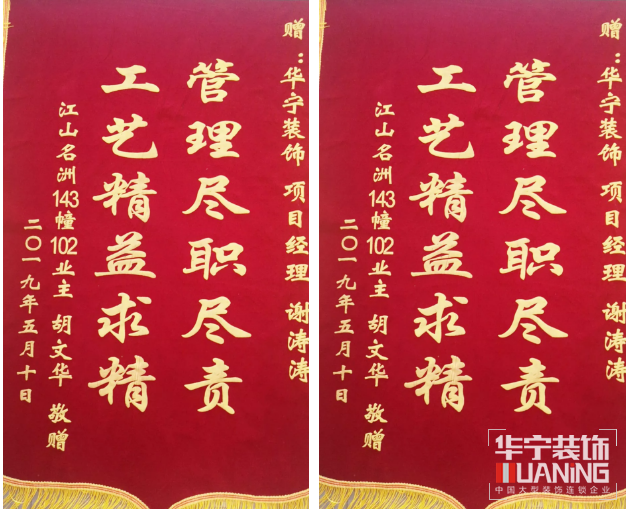 赠：华宁装饰 项目经理 谢涛涛
管理尽职尽责
工艺精益求精
江山名洲143幢102业主 胡文华 敬赠
二〇一九年五月十日
赠：华宁装饰 项目经理 谢涛涛
管理尽职尽责
工艺精益求精
江山名洲143幢102业主 胡文华 敬赠
二〇一九年五月十日
华宁装饰
HUANING
中国大型装饰连锁企业